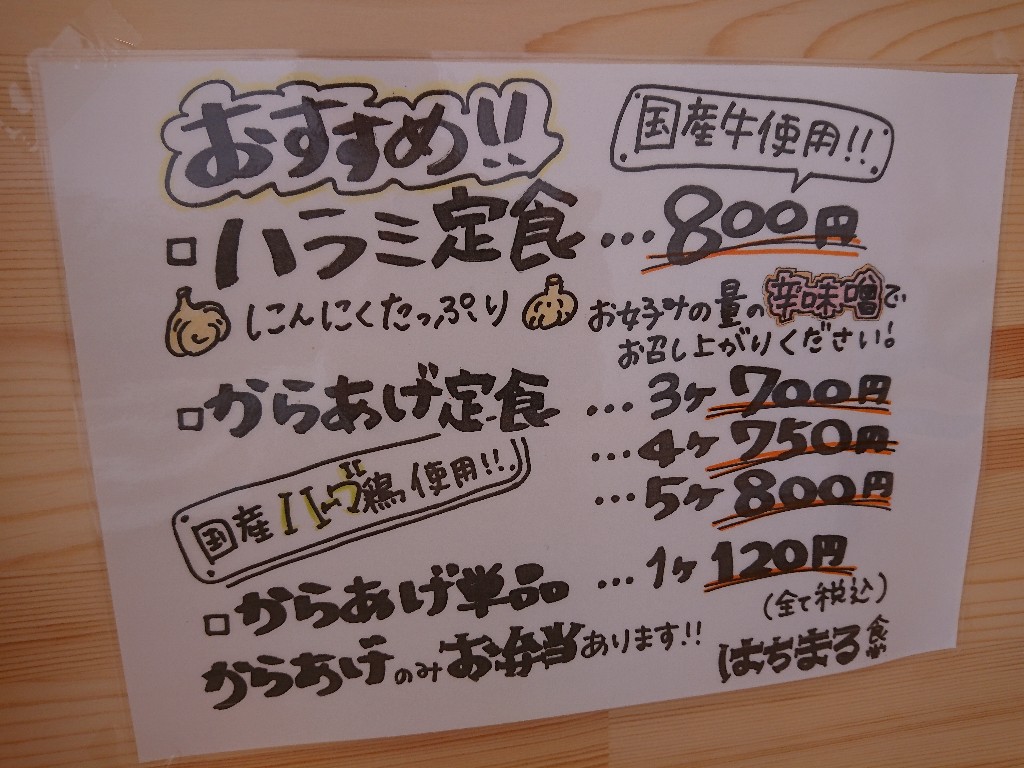 おすすめ!!
国産牛使用!!
□ハラミ定食…800円
にんにくたっぷり
お好みの量の辛味噌で
お召し上がりください!
□からあげ定食…3ヶ700円
…4ヶ750円
…5ヶ800円
国産ハーブ鶏使用!!
□からあげ単品…1ヶ120円
(全て税込)
からあげのみお弁当あります!!
はちまる食堂